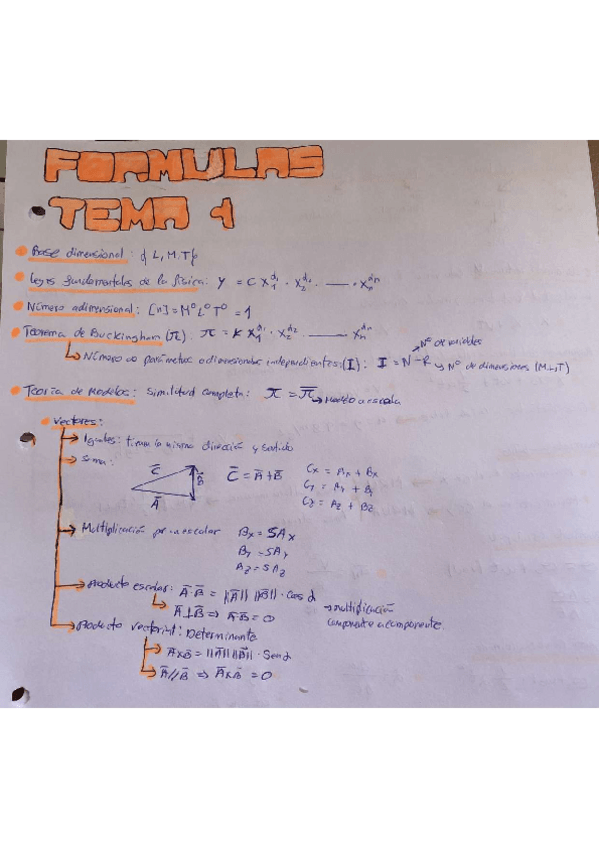 FORMULAS
TEMA 1
Base dimensional: {L, M, T}
Leyes fundamentales de la física: y = C X₁^α₁ · X₂^α₂ · —— · Xₙ^αₙ
Número adimensional: [n] = M⁰ L⁰ T⁰ = 1
Teorema de Buckingham (π): π = K X₁^α₁ · X₂^α₂ · —— · Xₙ^αₙ
Nº de variables
↳ Número de parámetros adimensionales independientes: (I): I = N - R → Nº de dimensiones (M, L, T)
Teoría de Modelos: Similitud completa: π = π̄ → Modelo a escala
Vectores:
→ Iguales: tienen la misma dirección y sentido
→ Suma:
C̄ B̄ Ā C̄ = Ā + B̄ Cx = Ax + Bx
Cy = Ay + By
Cz = Az + Bz
→ Multiplicación por escalar Bx = SAx
By = SAy
Az = SAz
→ Producto escalar: Ā · B̄ = ||Ā|| ||B̄|| · Cos α
↳ Ā ⊥ B̄ ⇒ Ā · B̄ = 0 → multiplicación
componente a componente
→ Producto vectorial: Determinante
→ Ā x B̄ = ||Ā|| ||B̄|| · Sen α
↳ Ā // B̄ ⇒ Ā x B̄ = 0